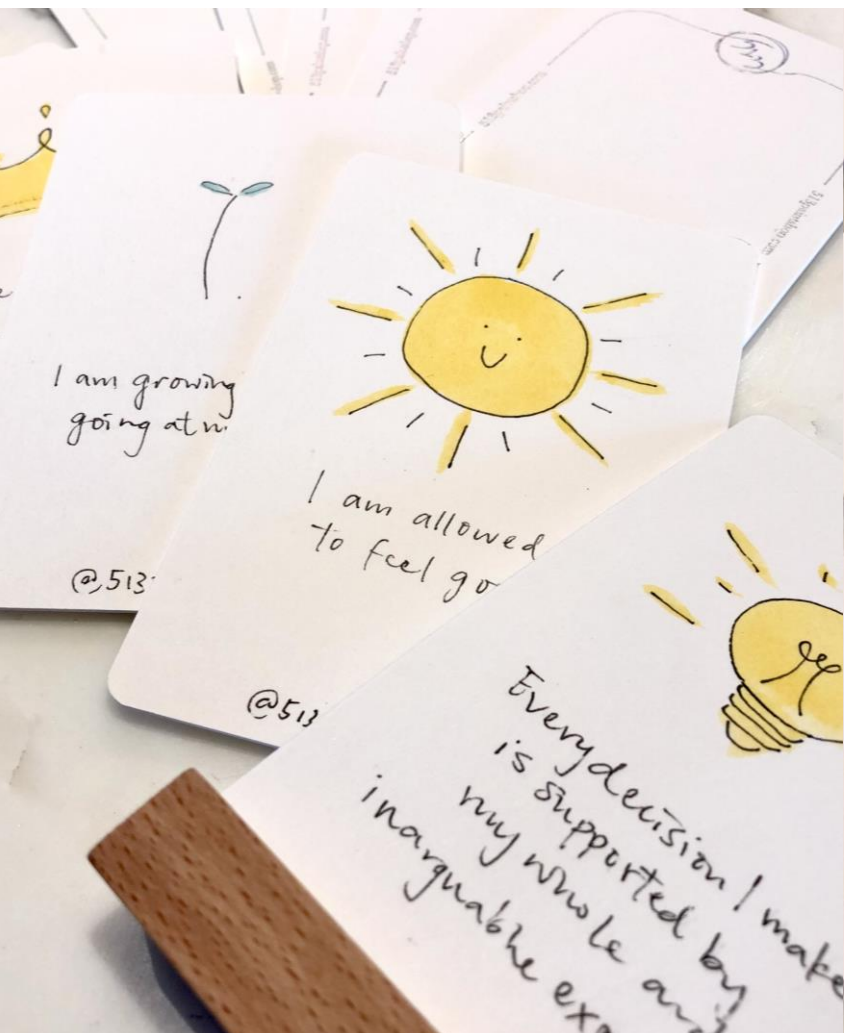 I am growing
going at
@513
I am allowed
to feel go
@513
Every decision I make
is supported by
my whole and
inarguable